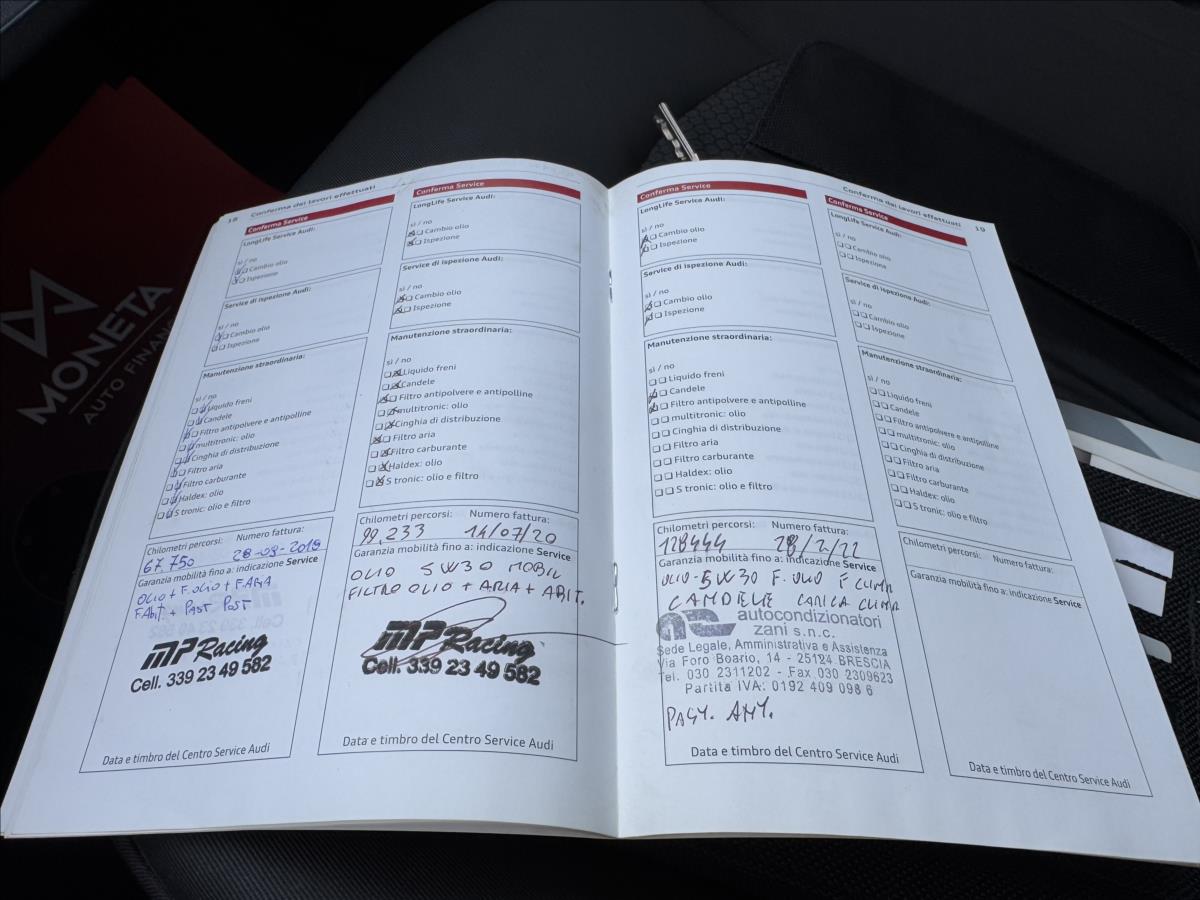 MONETA
AUTO FINAN
18 Conferma dei lavori effettuati
Conferma Service
LongLife Service Audi:
sì / no
Cambio olio
Ispezione
Service di ispezione Audi:
sì / no
Cambio olio
Ispezione
Manutenzione straordinaria:
sì / no
Liquido freni
Candele
Filtro antipolvere e antipolline
multitronic: olio
Cinghia di distribuzione
Filtro aria
Filtro carburante
Haldex: olio
S tronic: olio e filtro
Chilometri percorsi: Numero fattura:
67.750 28-09-2019
Garanzia mobilità fino a: indicazione Service
OLIO + F.OLIO + F.ARIA
F.ABIT + PAST POST
MP Racing
Cell. 339 23 49 582
Data e timbro del Centro Service Audi
Conferma Service
LongLife Service Audi:
sì / no
Cambio olio
Ispezione
Service di ispezione Audi:
sì / no
Cambio olio
Ispezione
Manutenzione straordinaria:
sì / no
Liquido freni
Candele
Filtro antipolvere e antipolline
multitronic: olio
Cinghia di distribuzione
Filtro aria
Filtro carburante
Haldex: olio
S tronic: olio e filtro
Chilometri percorsi: Numero fattura:
99.233 14/07/20
Garanzia mobilità fino a: indicazione Service
OLIO 5W30 MOBIL
FILTRO OLIO + ARIA + ABIT.
MP Racing
Cell. 339 23 49 582
Data e timbro del Centro Service Audi
Conferma Service
LongLife Service Audi:
sì / no
Cambio olio
Ispezione
Service di ispezione Audi:
sì / no
Cambio olio
Ispezione
Manutenzione straordinaria:
sì / no
Liquido freni
Candele
Filtro antipolvere e antipolline
multitronic: olio
Cinghia di distribuzione
Filtro aria
Filtro carburante
Haldex: olio
S tronic: olio e filtro
Chilometri percorsi: Numero fattura:
128444 28/2/22
Garanzia mobilità fino a: indicazione Service
OLIO-5W30 F.OLIO F CLIMA
CANDELE CARICA CLIMA
autocondizionatori
zani s.n.c.
Sede Legale, Amministrativa e Assistenza
Via Foro Boario, 14 - 25124 BRESCIA
Tel. 030 2311202 - Fax 030 2309623
Partita IVA: 0192 409 098 6
ANT.
Data e timbro del Centro Service Audi
Conferma dei lavori effettuati 19
Conferma Service
LongLife Service Audi:
sì / no
Cambio olio
Ispezione
Service di ispezione Audi:
sì / no
Cambio olio
Ispezione
Manutenzione straordinaria:
sì / no
Liquido freni
Candele
Filtro antipolvere e antipolline
multitronic: olio
Cinghia di distribuzione
Filtro aria
Filtro carburante
Haldex: olio
S tronic: olio e filtro
Chilometri percorsi: Numero fattura:
Garanzia mobilità fino a: indicazione Service
Data e timbro del Centro Service Audi